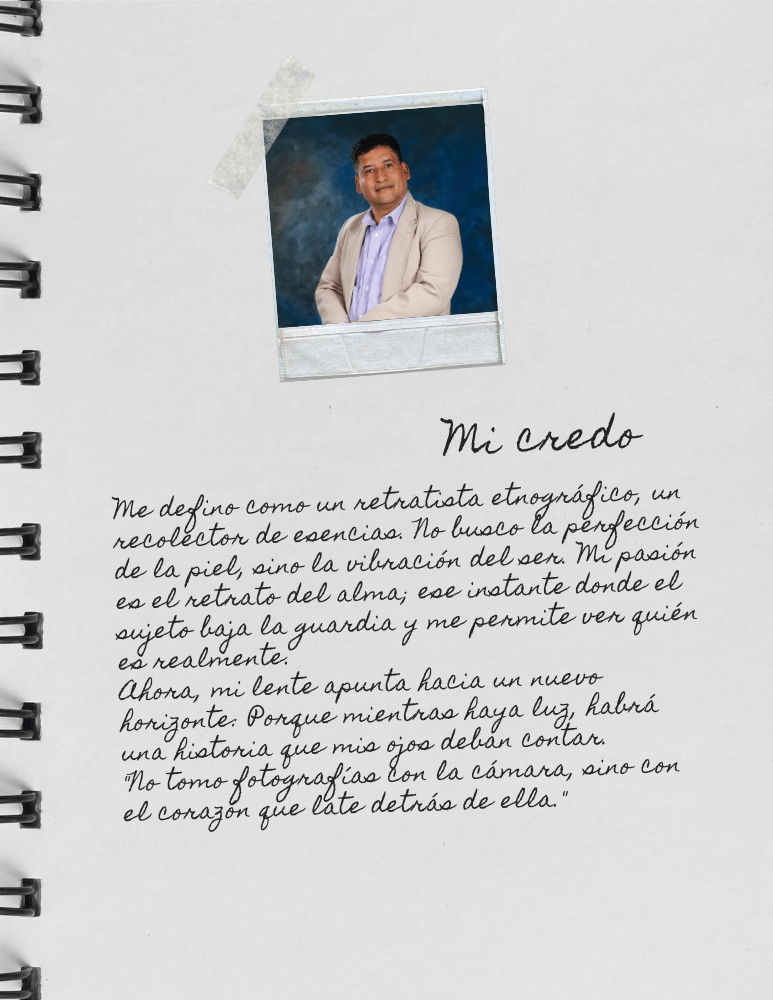 Mi credo
Me defino como un retratista etnográfico, un
recolector de esencias. No busco la perfección
de la piel, sino la vibración del ser. Mi pasión
es el retrato del alma; ese instante donde el
sujeto baja la guardia y me permite ver quién
es realmente.
Ahora, mi lente apunta hacia un nuevo
horizonte. Porque mientras haya luz, habrá
una historia que mis ojos deban contar.
"No tomo fotografías con la cámara, sino con
el corazón que late detrás de ella."